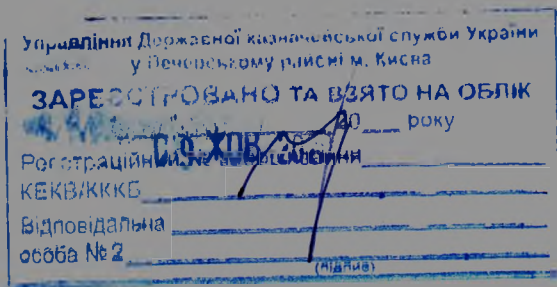 Управління Державної казначейської служби України
у Печерському районі м. Києва
ЗАРЕЄСТРОВАНО ТА ВЗЯТО НА ОБЛІК
20 року
09 ЖОВ
Реєстраційний №
КЕКВ/КККБ
Відповідальна
особа №2
(підпис)